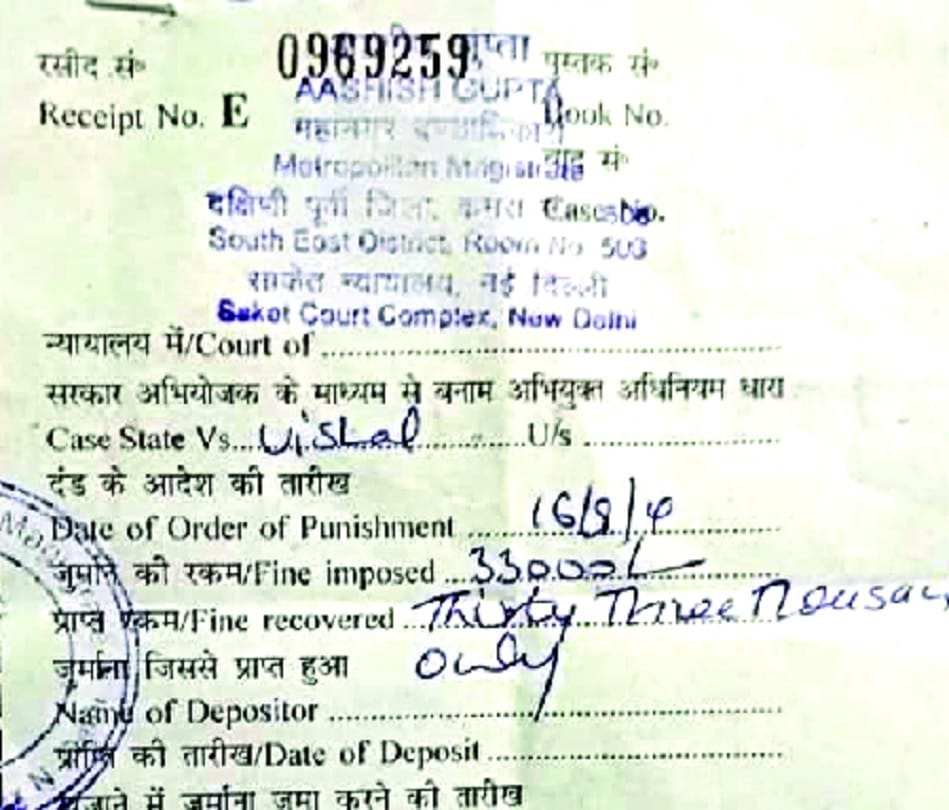 रसीद सं॰ 0969259 गुप्ता पुस्तक सं॰
Receipt No. E AASHISH GUPTA Book No.
महानगर दण्डाधिकारी वाद सं॰
Metropolitan Magistrate
दक्षिणी पूर्वी जिला, कमरा Case No.
South East District, Room No. 503
साकेत न्यायालय, नई दिल्ली
Saket Court Complex, New Delhi
न्यायालय में/Court of
सरकार अभियोजक के माध्यम से बनाम अभियुक्त अधिनियम धारा
Case State Vs. Vishal U/s
दंड के आदेश की तारीख
Date of Order of Punishment 16/9/
जुर्माने की रकम/Fine imposed 33000/-
प्राप्त रकम/Fine recovered Thirty Three Thousand
जुर्माना जिससे प्राप्त हुआ only
Name of Depositor
प्राप्ति की तारीख/Date of Deposit
खजाने में जुर्माना जमा करने की तारीख